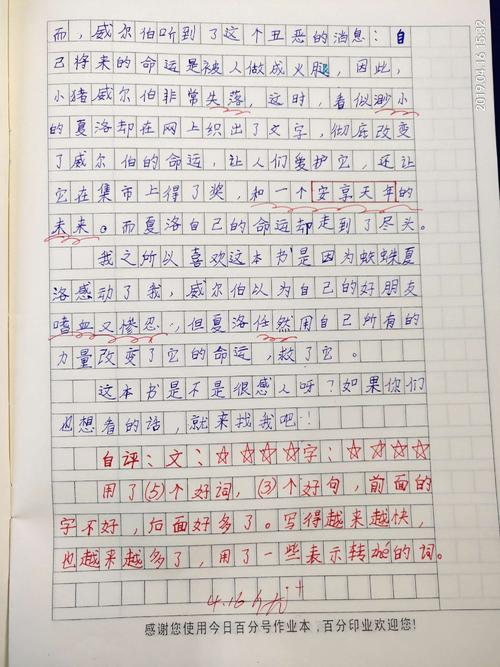 而，威尔伯听到了这个丑恶的消息：自
己将来的命运是被人做成火腿，因此，
小猪威尔伯非常失落，这时，看似渺小
的夏洛却在网上织出了文字，彻底改变
了威尔伯的命运，让人们爱护它，还让
它在集市上得了奖，和一个安享天年的
未来。而夏洛自己的命运却走到了尽头。
我之所以喜欢这本书是因为蜘蛛夏
洛感动了我，威尔伯以为自己的好朋友
嗜血又惨忍，但夏洛任然用自己所有的
力量改变了它的命运，救了它。
这本书是不是很感人呀？如果你们
也想看的话，就来找我吧！
自评：文：☆☆☆☆字：☆☆☆☆
用了(5)个好词，(3)个好句，前面的
字不好，后面好多了。写得越来越快，
也越来越多了，用了一些表示转折的词。
4.16
感谢您使用今日百分号作业本，百分印业欢迎您！
2019.04.16 15:32